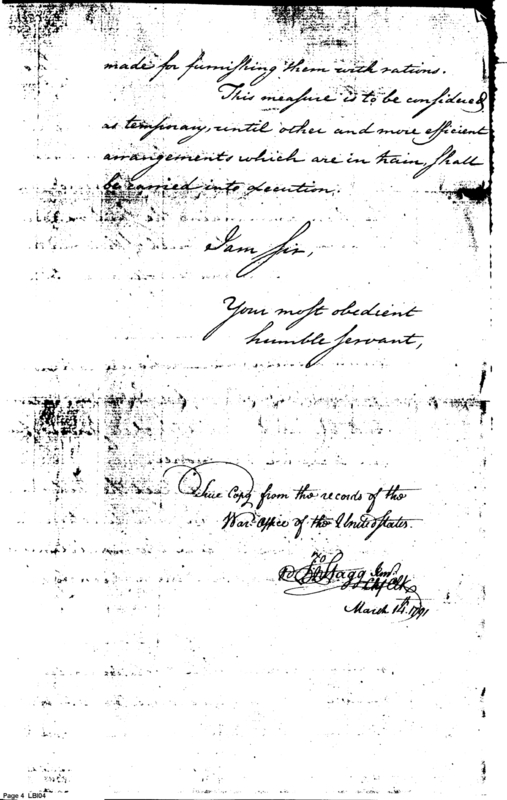 made for furnishing them with rations.
This measure is to be considered,
as temporary, until other and more efficient
arrangements which are in train, shall
be carried into execution.
I am Sir,
Your most obedient
humble servant,
True Copy from the records of the
War Office of the United States.
Stagg Junr.
Chf Clk
March 14. 1791
Page 4 LBI04